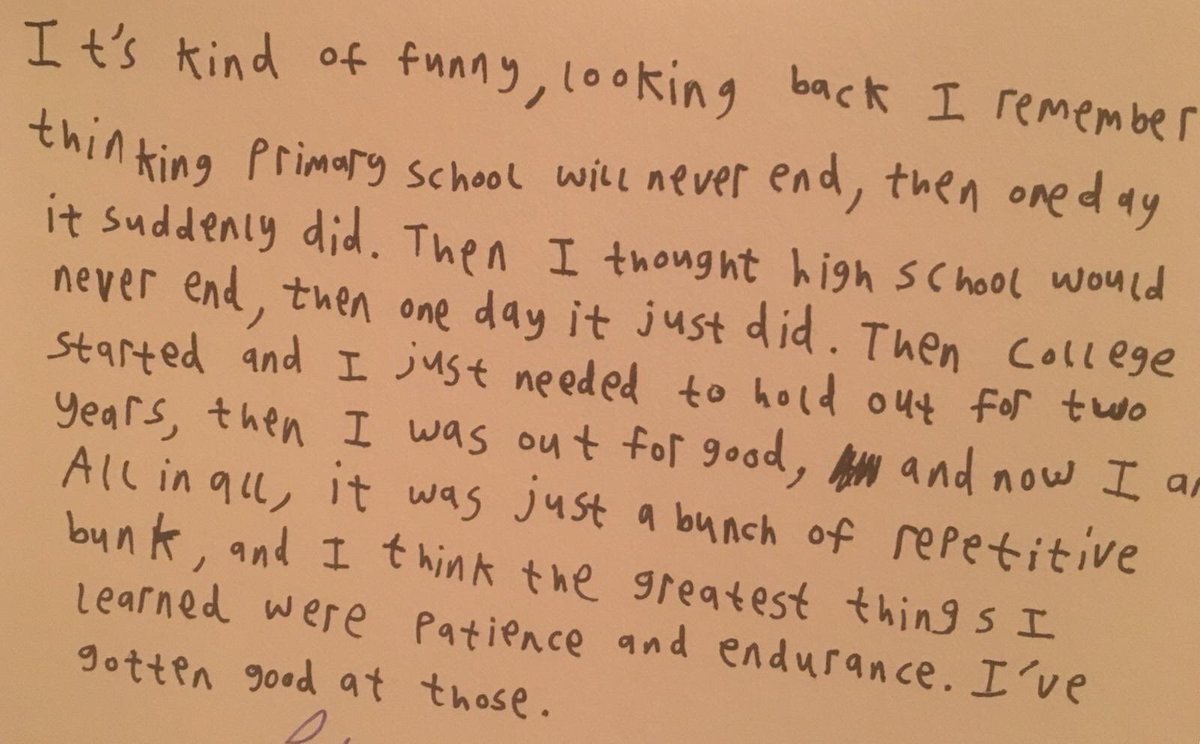 It's kind of funny, looking back I remember
thinking primary school will never end, then one day
it suddenly did. Then I thought high school would
never end, then one day it just did. Then college
started and I just needed to hold out for two
years, then I was out for good, and now I a
All in all, it was just a bunch of repetitive
bunk, and I think the greatest things I
learned were patience and endurance. I've
gotten good at those.